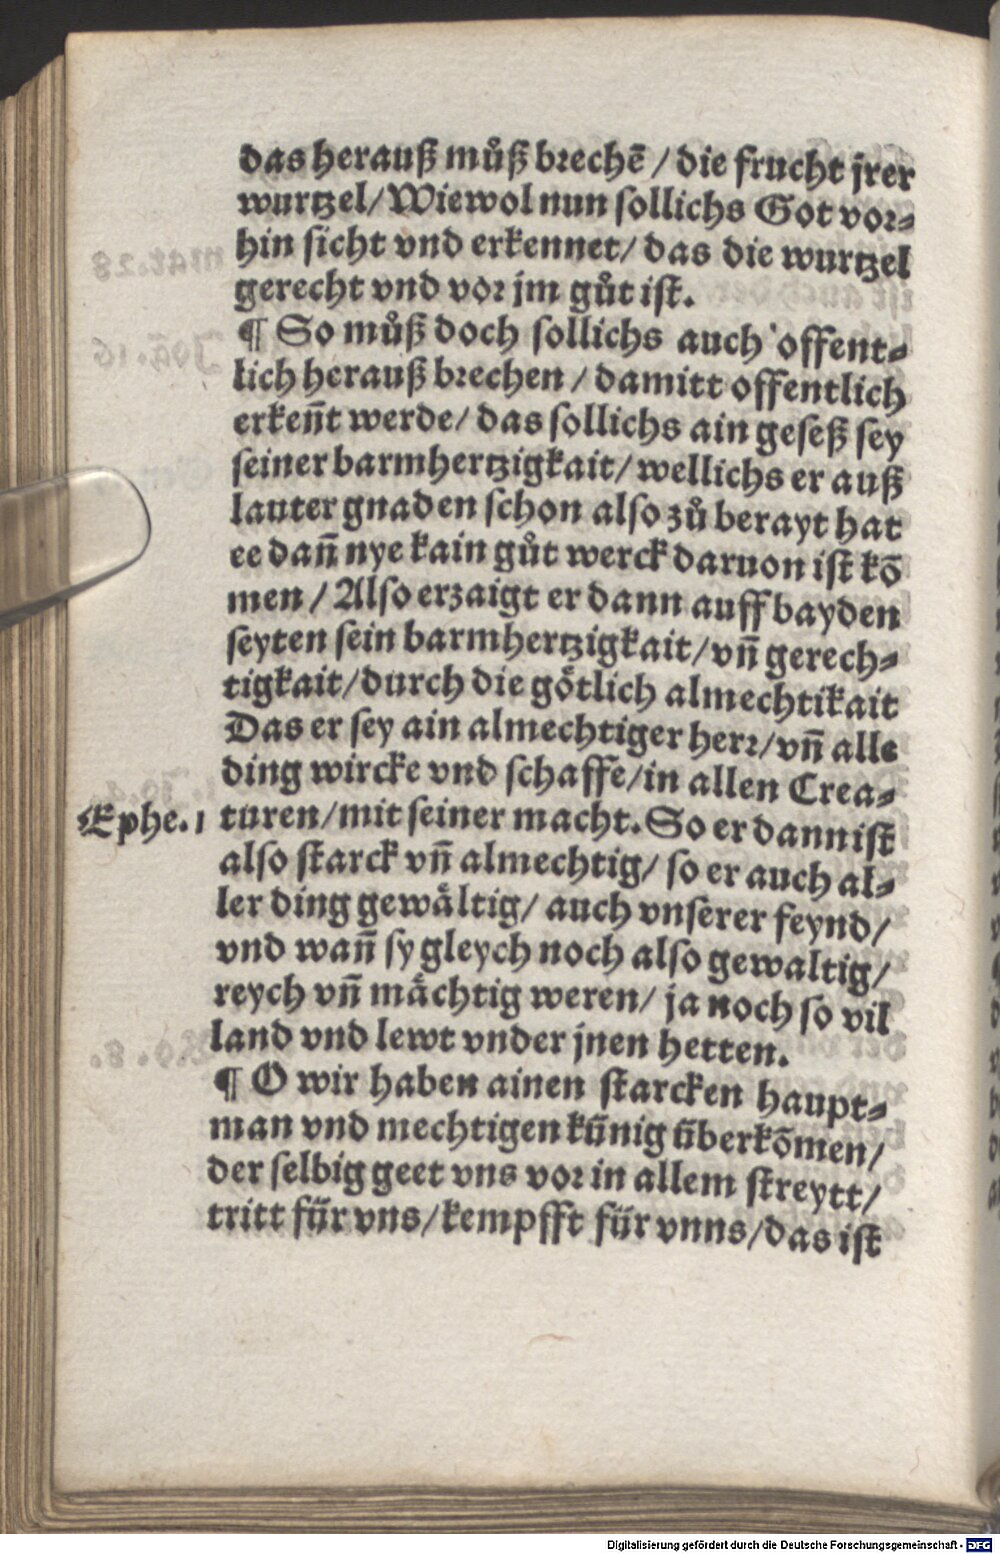 das herauß můß brechē / die frucht jrer
wurtzel / Wiewol nun sollichs Got vor⸗
hin sicht vnd erkennet / das die wurtzel
gerecht vnd vor jm gůt ist.
¶ So můß doch sollichs auch offent⸗
lich herauß brechen / damitt offentlich
erkeñt werde / das sollichs ain geseß sey
seiner barmhertzigkait / wellichs er auß
lauter gnaden schon also zů berayt hat
ee dañ nye kain gůt werck daruon ist kō
men / Also erzaigt er dann auff bayden
seyten sein barmhertzigkait / vñ gerech⸗
tigkait / durch die goͤtlich almechtikait
Das er sey ain almechtiger herr / vñ alle
ding wircke vnd schaffe / in allen Crea⸗
Ephe. 1 turen / mit seiner macht. So er dann ist
also starck vñ almechtig / so er auch al⸗
ler ding gewaͤltig / auch vnserer feynd /
vnd wañ sy gleych noch also gewaltig /
reych vñ maͤchtig weren / ja noch so vil
land vnd lewt vnder jnen hetten.
¶ O wir haben ainen starcken haupt⸗
man vnd mechtigen künig überkōmen /
der selbig geet vns vor in allem streytt /
tritt für vns / kempfft für vnns / das ist
Digitalisierung gefördert durch die Deutsche Forschungsgemeinschaft - DFG